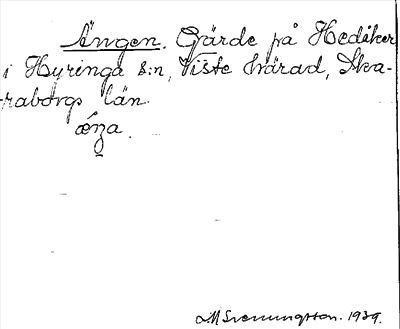 Ängen. Gärde på Hedåker
i Hyringa s:n, Viste härad, Ska-
raborgs län.
M Svenungsson. 1939.